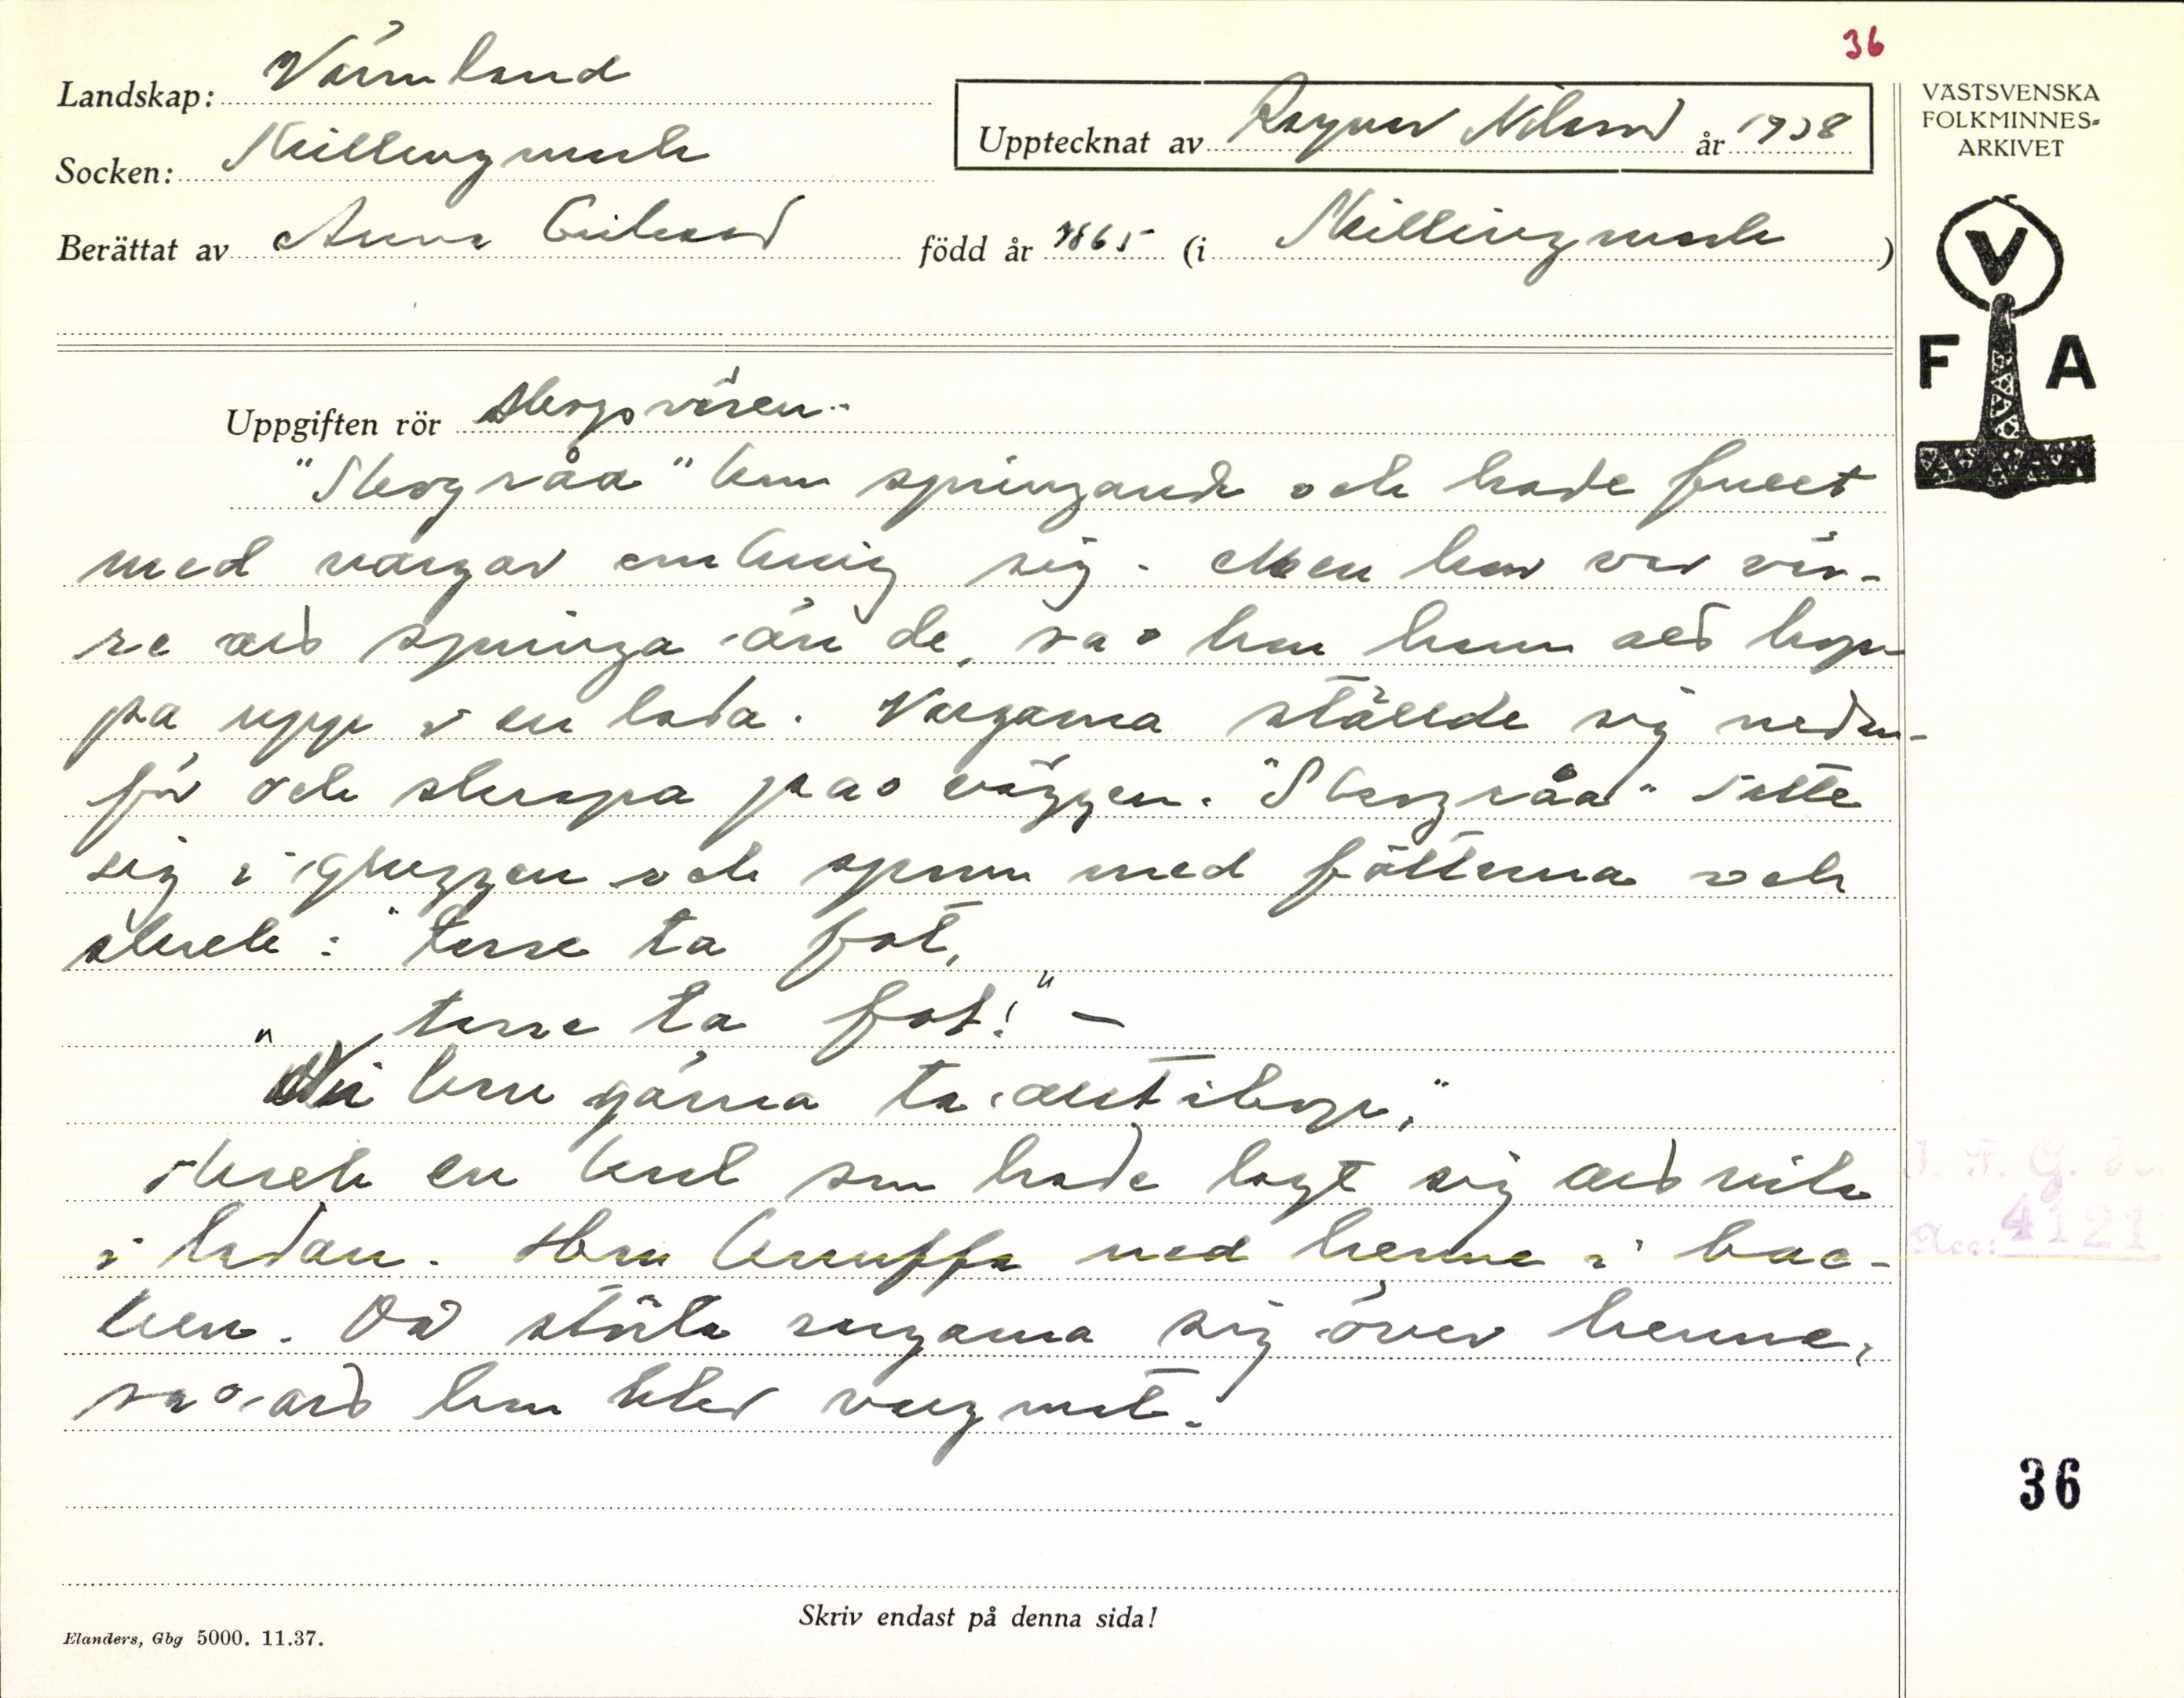 36
Landskap: Värmland
Socken: Skillingmark
Upptecknat av Ragnar Nilsson år 1938
Berättat av Anna Eriksson född år 1865 (i Skillingmark)
VÄSTSVENSKA
FOLKMINNES=
ARKIVET
V
F A
Uppgiften rör Skogsväsen.
"Skogråa" kom springande och hade fullt
med vargar omkring sig. Men hon var vär-
re att springa än de, så hon hann att hop-
pa upp i en lada. Vargarna ställde sig nedan-
för och skrapa på väggen. "Skogråa" satte
sig i gluggen och spann med fötterna och
skrek: "torre ta fot,
torre ta fot!" –
"Vi kan gärna ta alltihop,"
skrek en karl som hade lagt sig att vila
i ladan. Han knuffa ned henne i bac-
ken. Då störta vargarna sig över henne,
så att hon blev vargmat.
J. F. G. dr.
Acc: 4121
36
Skriv endast på denna sida!
Elanders, Gbg 5000. 11.37.